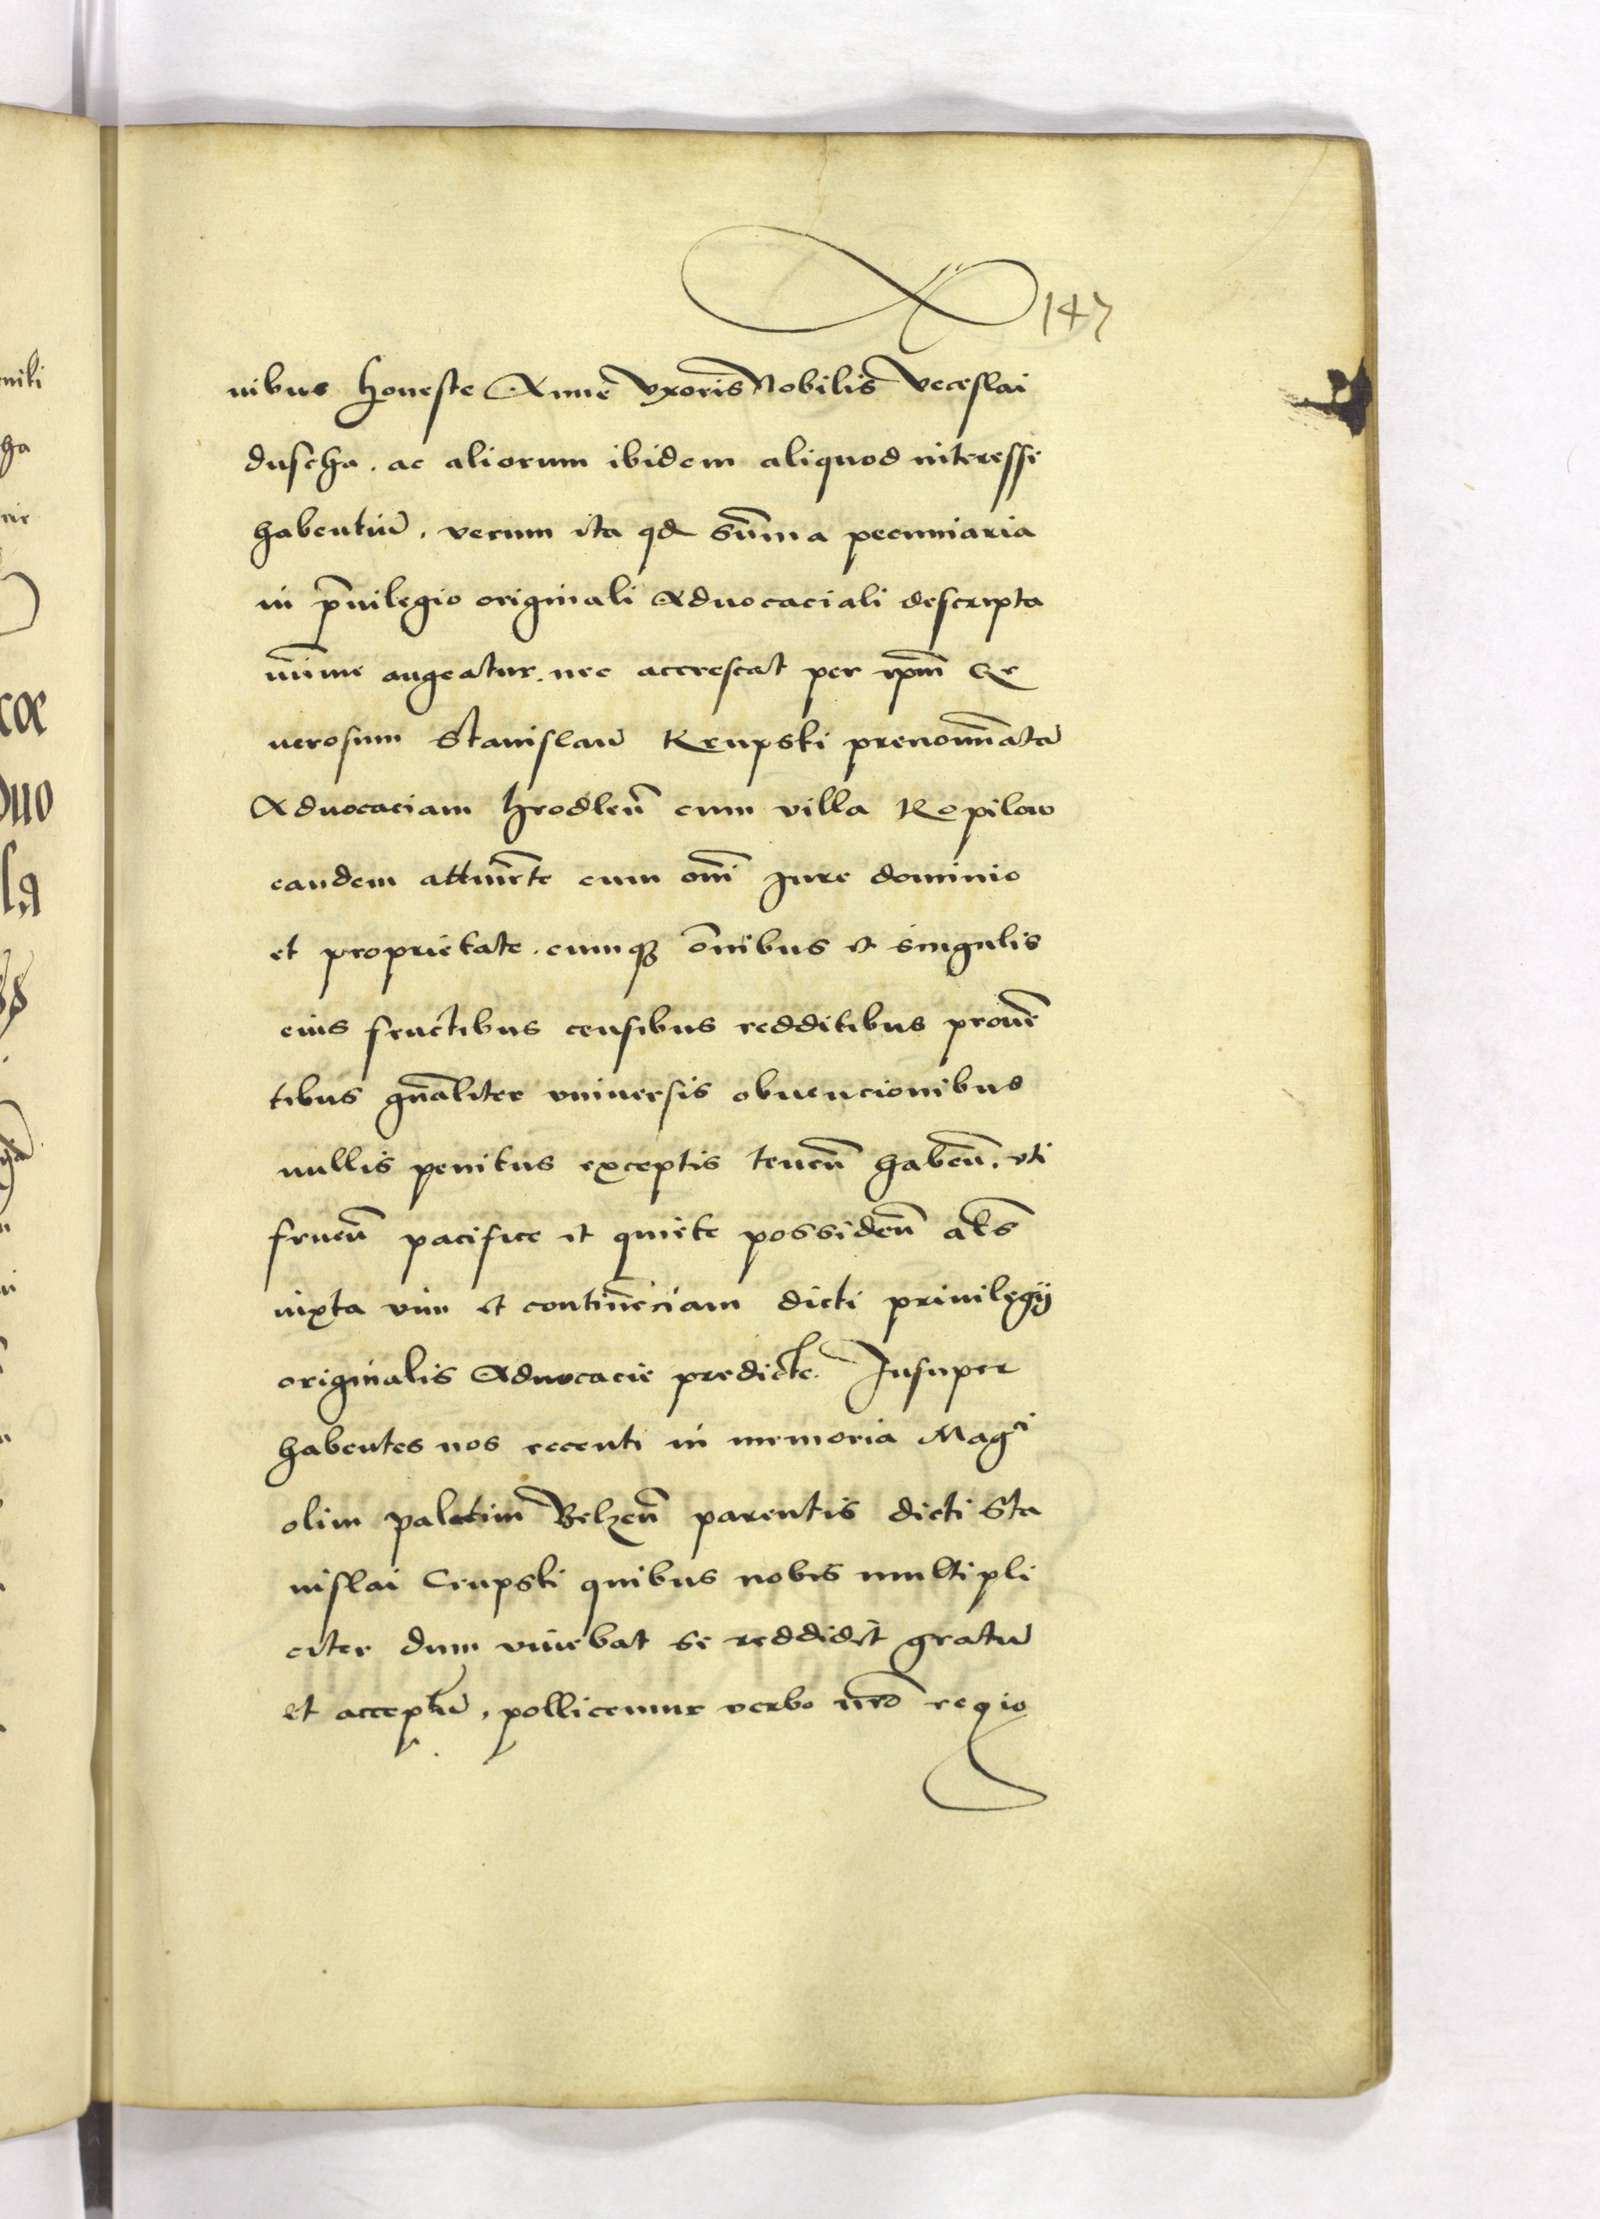 147
nibus honeste Anne Vxoris Nobilis Veceslai
duscha. ac aliorum ibidem aliquod interesse
habentiū. verum ita qd sūma pecuniaria
in p̄uilegio originali Aduocaciali descripta
mīme augeatur. nec accrescat per ipm̄ Ge
nerosum Stanislaū Krupski prenoīnata
Aduocaciam hrodleñ cum villa Kopilow
eandem attinēte cum om̄i Jure dominio
et proprietate. cumq3 om̄ibus et singulis
eius fructibus censibus redditibus prouē
tibus gn̄aliter vniuersis obuencionibus
nullis penitus exceptis teneñ habeñ. vti
frueñ pacifice et quiete possideñ als̄
iuxta vim et contine̅ciam dicti priuilegij
originalis Aduocacie predicte. Insuper
habentes nos recenti in memoria Magci
olim palatini Belzeñ parentis dicti Sta
nislai Crupski quibus nobis multipli
citer dum viuebat se reddidit gratū
et acceptū, pollicemur verbo nr̄o regio